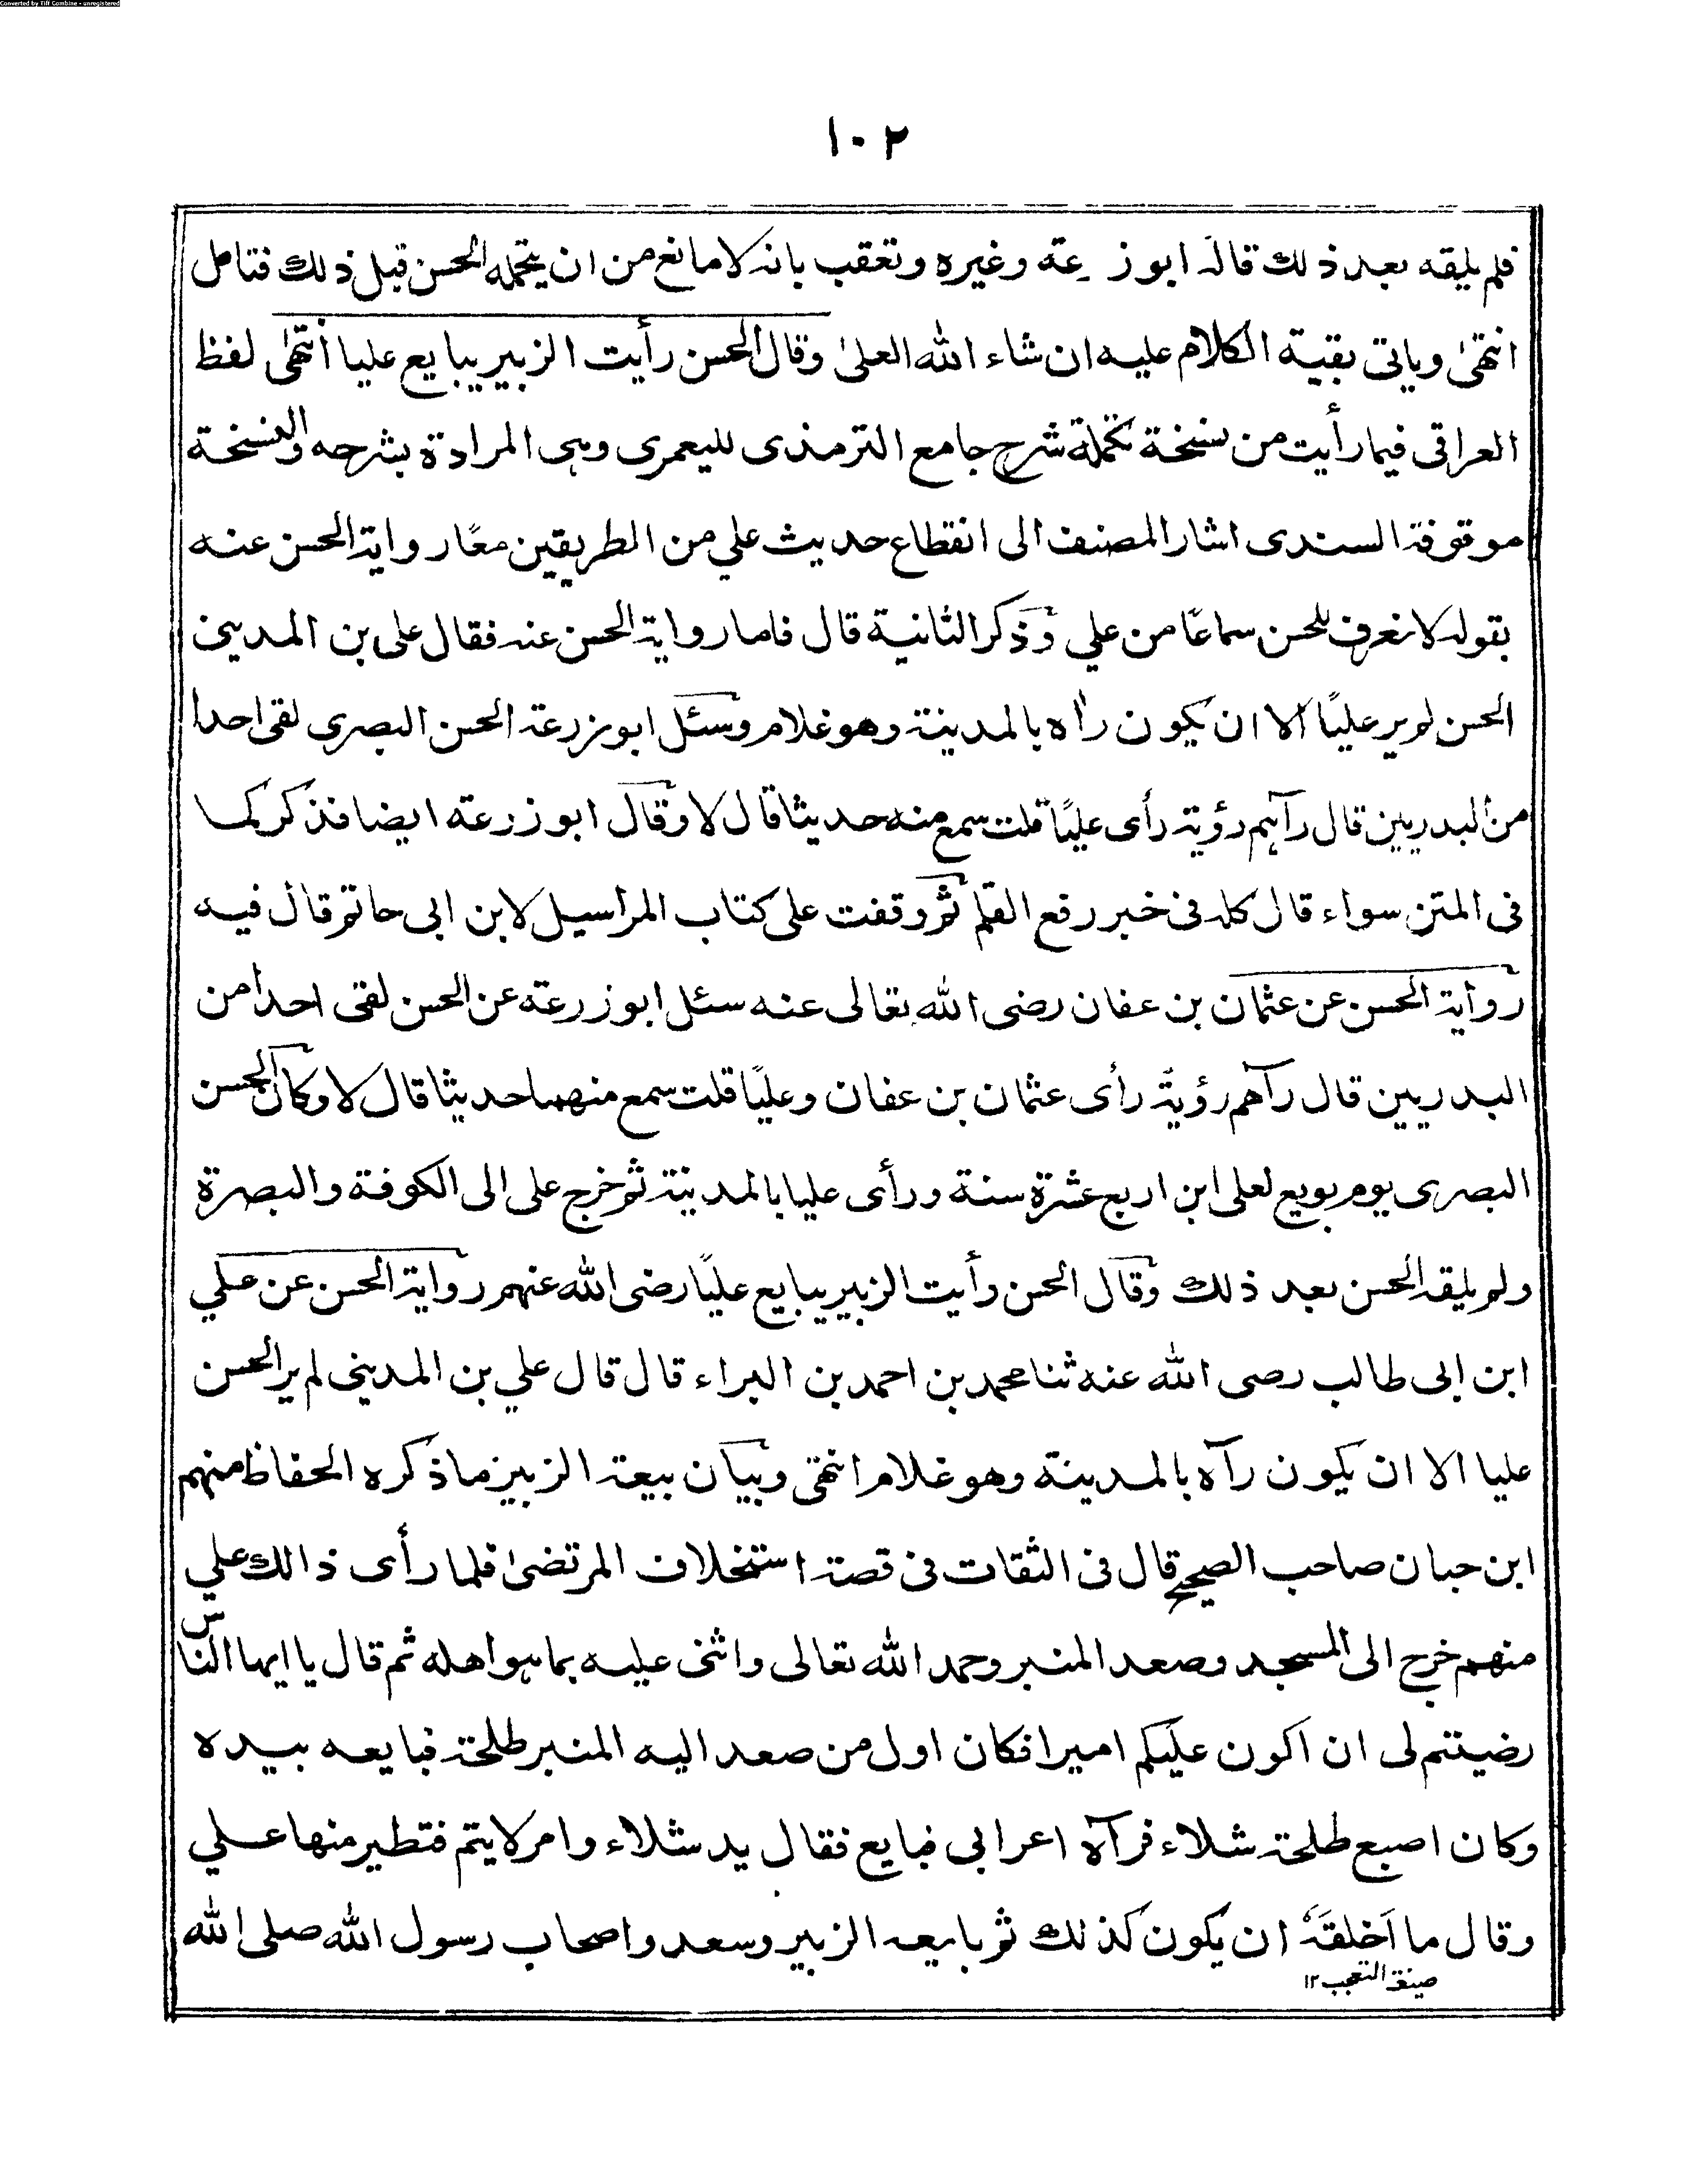 Converted by Tiff Combine - unregistered
١٠٢
فلم يلقه بعد ذلك قاله ابو زرعة وغيره وتعقب بانه لا مانع من ان يتحمله الحسن قبل ذلك فتامل
انتهىٰ وياتى بقية الكلام عليه ان شاء الله العلىٰ وقال الحسن رأيت الزبير يبايع عليا انتهىٰ لفظ
العراقى فيما رأيت من نسخة تكملة شرح جامع الترمذى لليعمرى وہى المرادة بشرحه والنسخة
موقوفة السندى اشار المصنف الى انقطاع حديث علي من الطريقين معًا رواية الحسن عنه
بقوله لا نعرف للحسن سماعًا من علي وذكر الثانية قال فاما رواية الحسن عنه فقال على بن المدينى
الحسن لم ير عليًا الا ان يكون رأه بالمدينة وهو غلام وسئل ابو زرعة الحسن البصرى لقى احدا
من البدريين قال رآہم رؤية رأى عليًا قلت سمع منه حديثا قال لا وقال ابو زرعة ايضا فذكر كما
فى المتن سواء قال كله فى خبر رفع القلم ثم وقفت على كتاب المراسيل لابن ابى حاتم قال فيه
رواية الحسن عن عثمان بن عفان رضى الله تعالى عنه سئل ابو زرعة عن الحسن لقى احدا من
البدريين قال رآهم رؤيةً رأى عثمان بن عفان وعليًا قلت سمع منهما حديثا قال لا وكان الحسن
البصرى يوم بويع لعلى ابن اربع عشرة سنة ورأى عليا بالمدينة ثم خرج على الى الكوفة والبصرة
ولم يلقه الحسن بعد ذلك وقال الحسن رأيت الزبير يبايع عليًا رضى الله عنهم رواية الحسن عن علي
ابن ابى طالب رضى الله عنه ثنا محمد بن احمد بن البراء قال قال علي بن المدينى لم ير الحسن
عليا الا ان يكون رآه بالمدينة وهو غلام انتهى وبيان بيعة الزبير ما ذكره الحفاظ منهم
ابن حبان صاحب الصحيح قال فى الثقات فى قصة استخلاف المرتضىٰ فلما رأى ذالك علي
منهم خرج الى المسجد وصعد المنبر وحمد الله تعالى واثنى عليه بما ہو اهله ثم قال يا ايہا الناس
رضيتم لى ان اكون عليكم اميرا فكان اول من صعد اليه المنبر طلحة فبايعه بيده
وكان اصبع طلحة شلاء فرآه اعرابى يبايع فقال يد شلاء وامر لا يتم فتطير منها علي
وقال ما اَخلقَهٗ ان يكون كذلك ثم بايعه الزبير وسعد واصحاب رسول الله صلى الله
صيغة التعجب ١٢